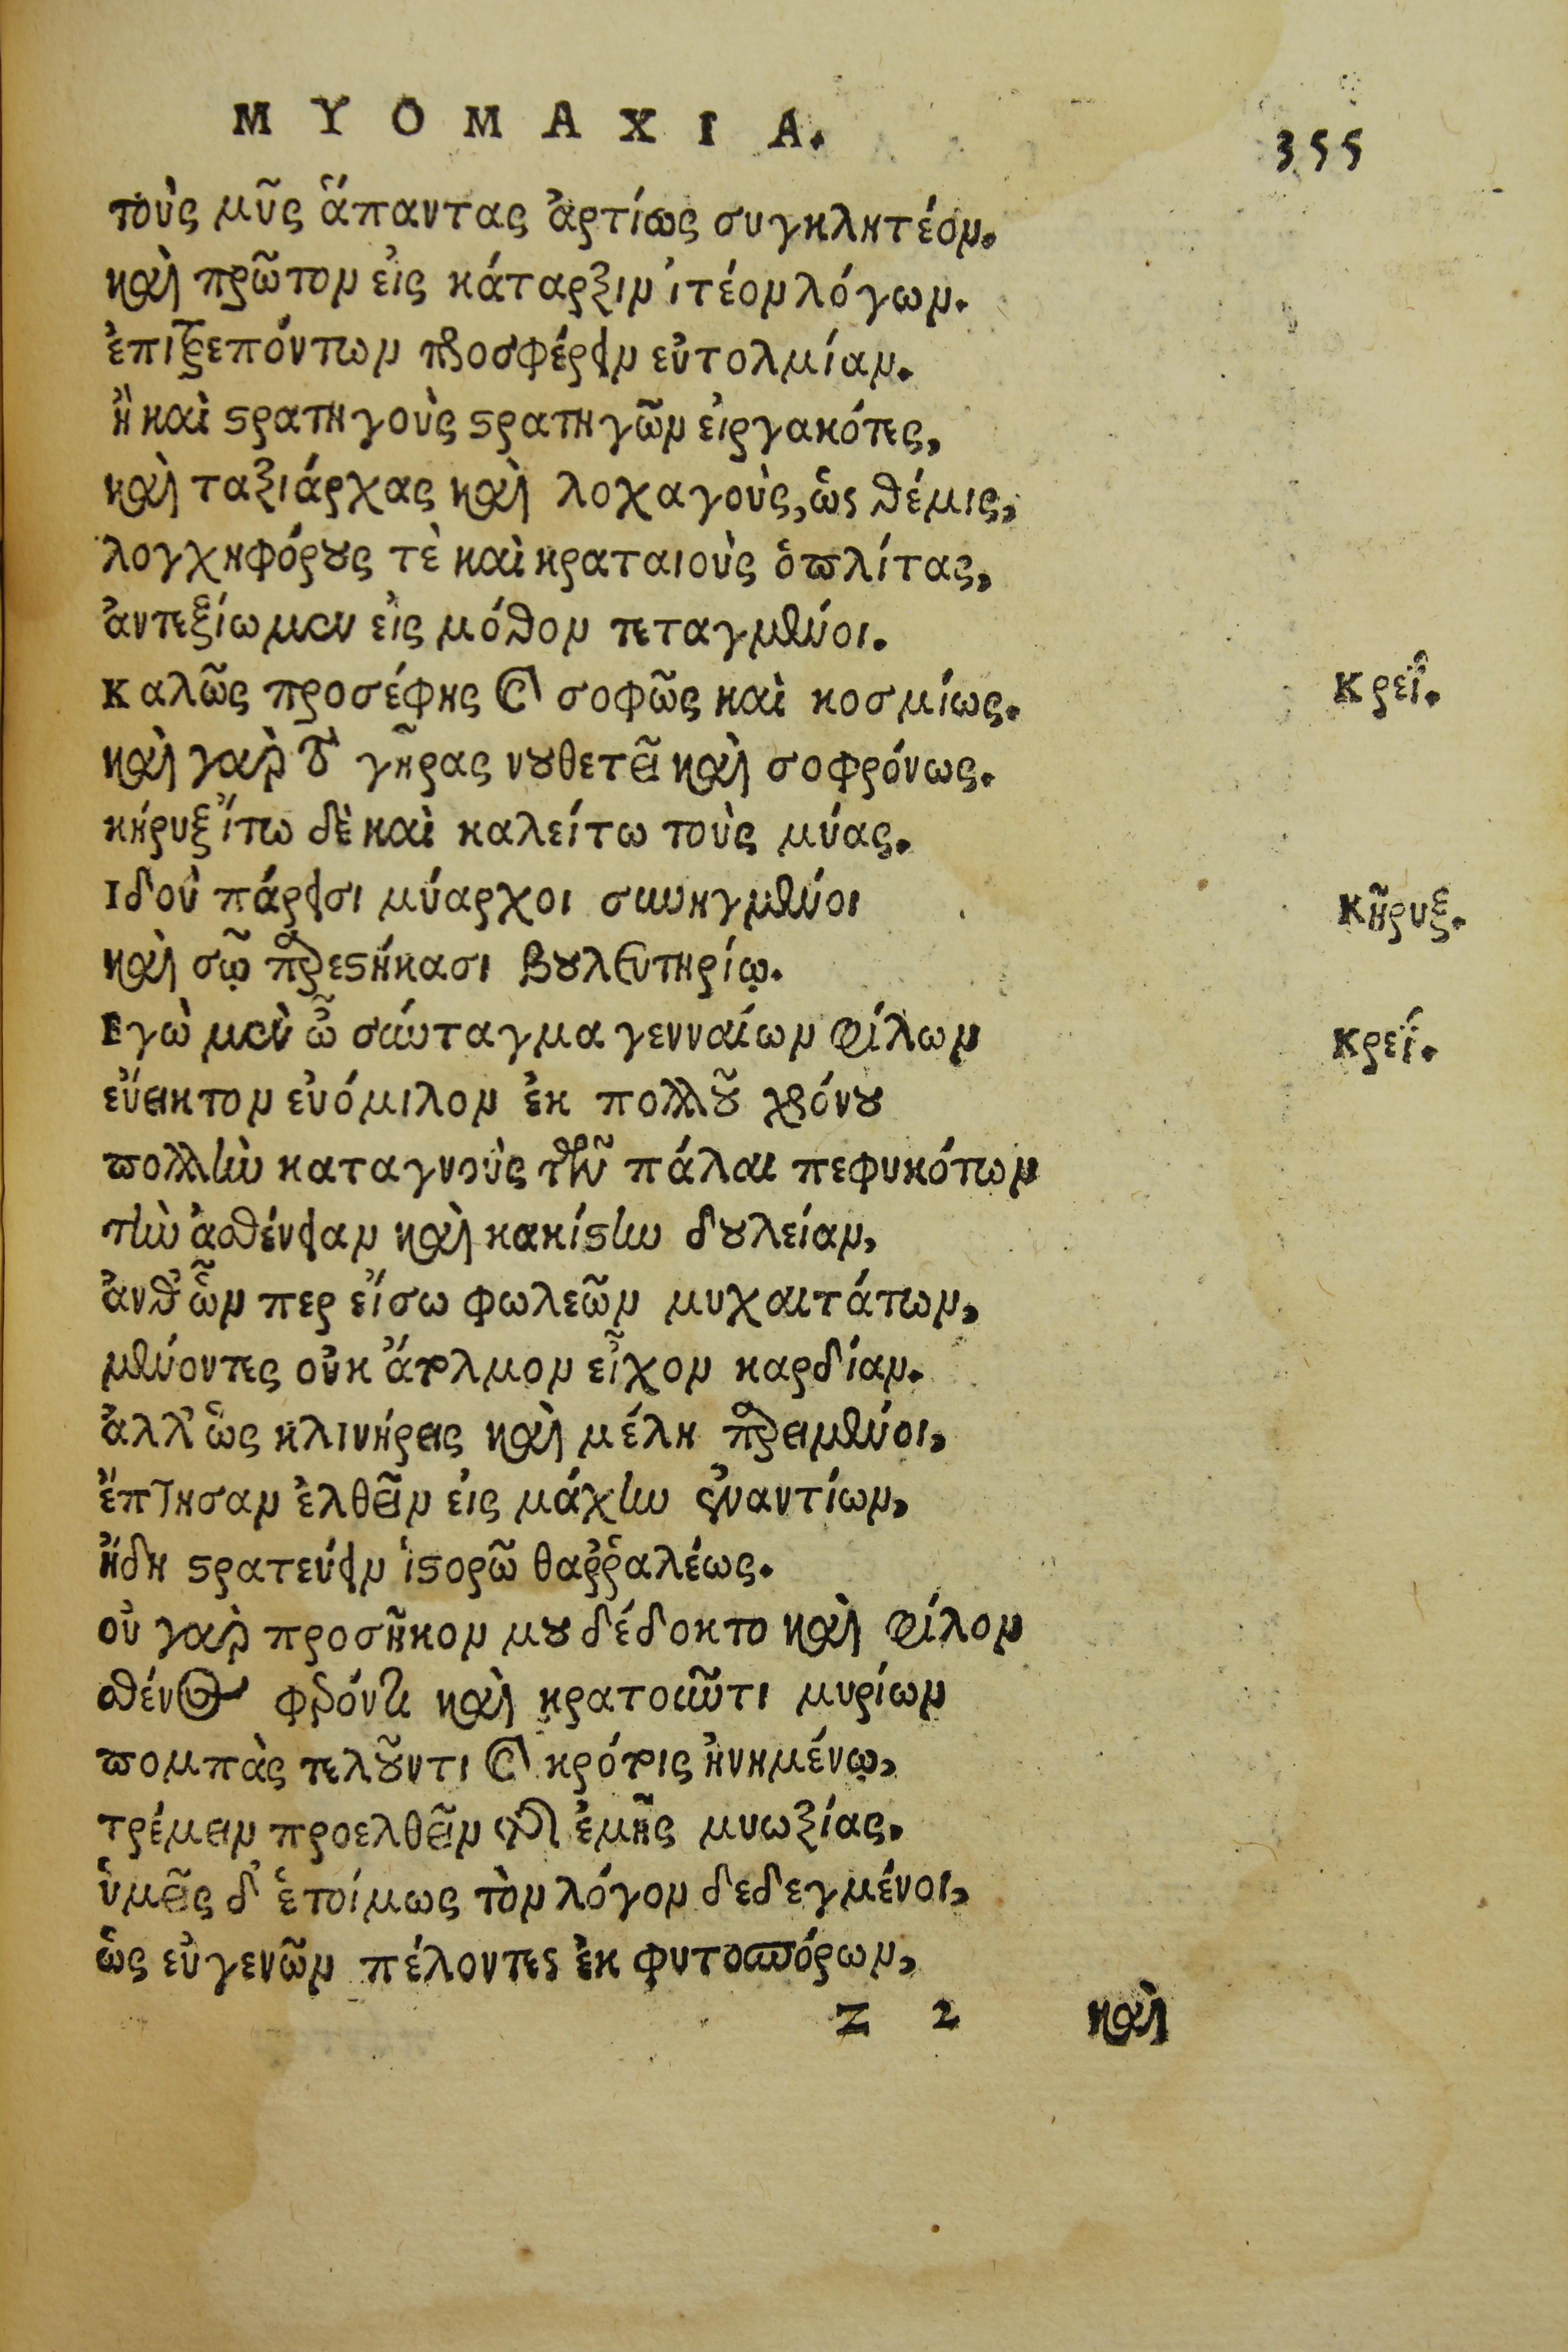 ΜΥΟΜΑΧΙΑ. 355
τοὺς μῦς ἅπαντας ἀρτίως συγκλητέον.
καὶ πρῶτον εἰς κάταρξιν ἰτέον λόγων.
ἐπιτρεπόντων προσφέρειν εὐτολμίαν.
ἢ καὶ στρατηγοὺς στρατηγῶν εἰργακότες,
καὶ ταξιάρχας καὶ λοχαγοὺς, ὡς θέμις,
λογχηφόρους τὲ καὶ κραταιοὺς ὁπλίτας,
ἀντεξίωμεν εἰς μόθον τεταγμένοι.
Καλῶς προσέφης καὶ σοφῶς καὶ κοσμίως. Κρεΐ.
καὶ γὰρ τὸ γῆρας νουθετεῖ καὶ σοφρόνως.
κήρυξ ἴτω δὲ καὶ καλείτω τοὺς μύας.
Ιδοὺ πάρεισι μύαρχοι συνηγμένοι Κῆρυξ.
καὶ σῷ παρεστήκασι βουλευτηρίῳ.
Εγὼ μὲν ὦ σύνταγμα γενναίων φίλων Κρεΐ.
εὔεικτον εὐόμιλον ἐκ πολλοῦ χρόνου
πολλὴν καταγνοὺς τῶν πάλαι πεφυκότων
τὴν ἀσθένειαν καὶ κακίστην δουλείαν,
ἀνθ' ὧν περ εἴσω φωλεῶν μυχαιτάτων,
μένοντες οὐκ ἄτολμον εἶχον καρδίαν.
ἀλλ' ὡς κλινήρεις καὶ μέλη παρειμένοι,
ἔπτησαν ἐλθεῖν εἰς μάχην ἐναντίων,
ἤδη στρατεύειν ἱστορῶ θαῤῥαλέως.
οὐ γὰρ προσῆκον μου δέδοκτο καὶ φίλον
σθένος φρόντι καὶ κρατοῦντι μυρίων
πομπὰς τελοῦντι καὶ κρότοις ἠνημένῳ,
τρέμειν προελθεῖν ἐξ ἐμῆς μυωξίας.
ὑμεῖς δ' ἑτοίμως τὸν λόγον δεδεγμένοι,
ὡς εὐγενῶν πέλοντες ἐκ φυτοσπόρων,
Z 2 καὶ